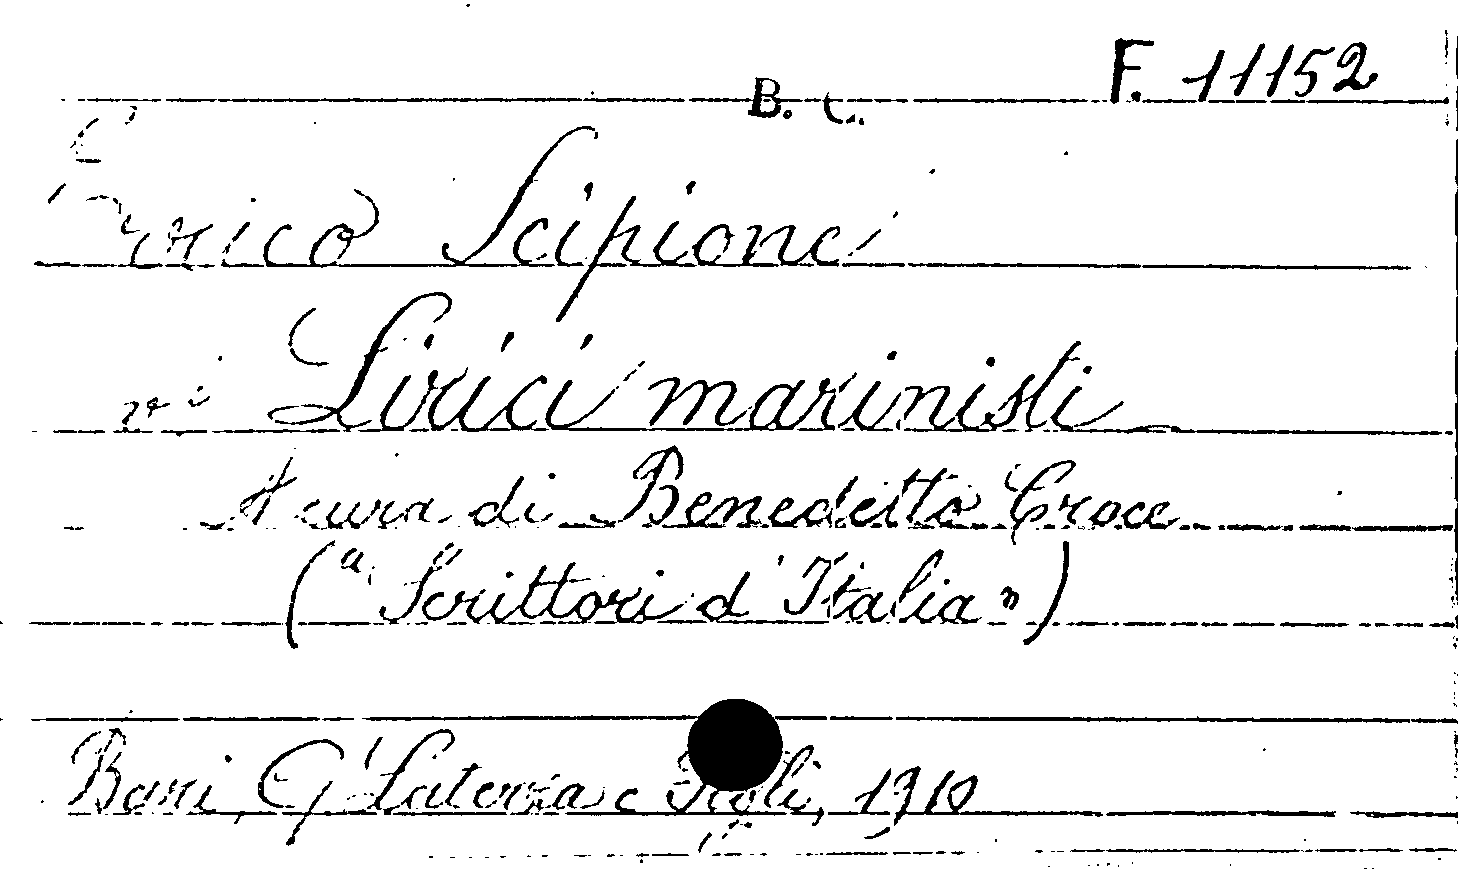 F. 11152
B. C.
Errico Scipione
vi Lirici marinisti
A cura di Benedetto Croce
("Scrittori d'Italia")
Bari, G. Laterza e Figli, 1910